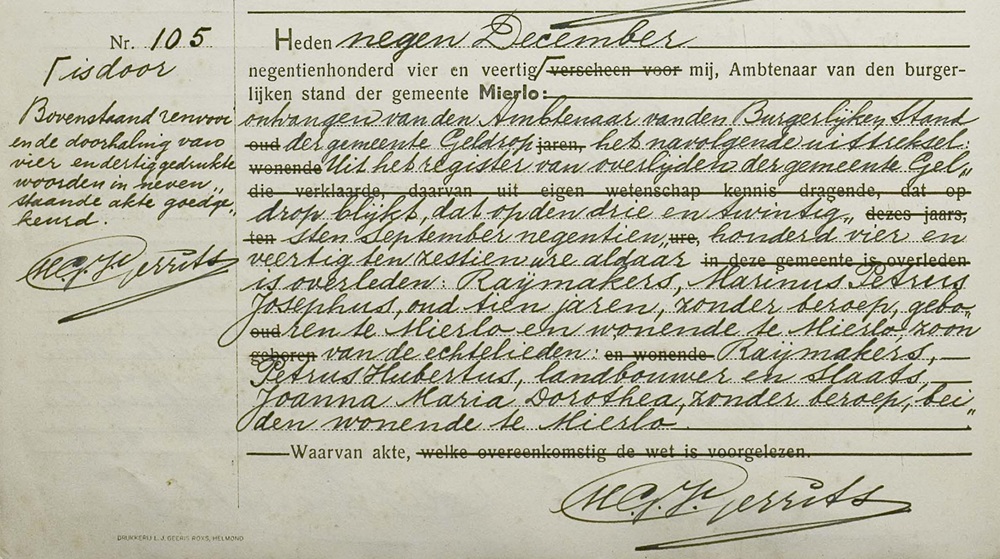 Nr. 105
Γ is door
Bovenstaand renvooi
en de doorhaling van
vier en dertig gedrukte
woorden in neven„
staande akte goedge„
keurd.
H.G.J. Gerrits
Heden negen December
negentienhonderd vier en veertig Γ verscheen voor mij, Ambtenaar van den burger-
lijken stand der gemeente Mierlo:
ontvangen van den Ambtenaar van den Burgerlijken Stand
oud der gemeente Geldrop jaren, het navolgende uittreksel:
wonende Uit het register van overlijden der gemeente Gel„
die verklaarde, daarvan uit eigen wetenschap kennis dragende, dat op
drop blijkt, dat op den drie en twintig„ dezes jaars,
ten sten September negentien„ ure, honderd vier en
veertig ten zestien ure aldaar in deze gemeente is overleden
is overleden: Raijmakers, Marinus Petrus
Josephus, oud tien jaren, zonder beroep, gebo„
oud ren te Mierlo en wonende te Mierlo, zoon
geboren van de echtelieden: en wonende Raijmakers,
Petrus Hubertus, landbouwer en Slaats,
Joanna Maria Dorothea, zonder beroep, bei„
den wonende te Mierlo.
Waarvan akte, welke overeenkomstig de wet is voorgelezen.
H.G.J. Gerrits
DRUKKERIJ L. J. GEERIS ROXS, HELMOND